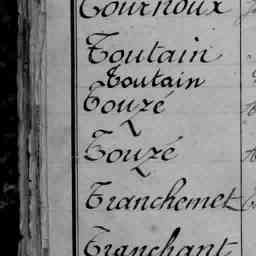 Tournoux
Toutain
Toutain
Touzé
Touzé
Tranchemet
Tranchant